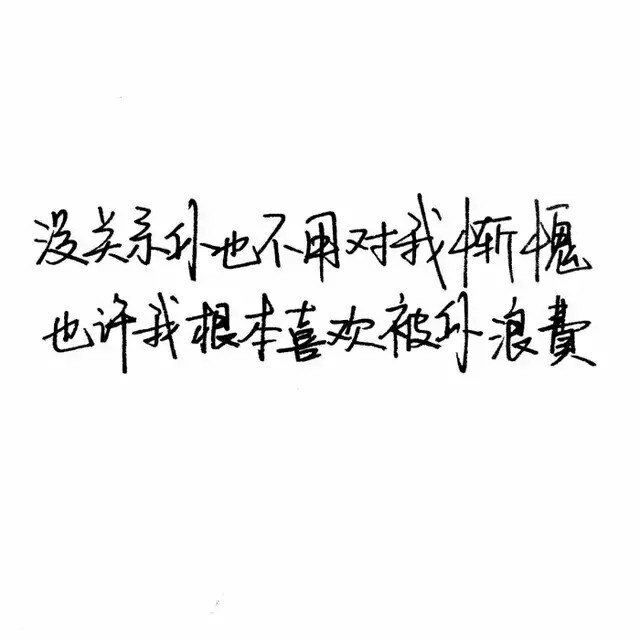 没关系你也不用对我惭愧
也许我根本喜欢被你浪費